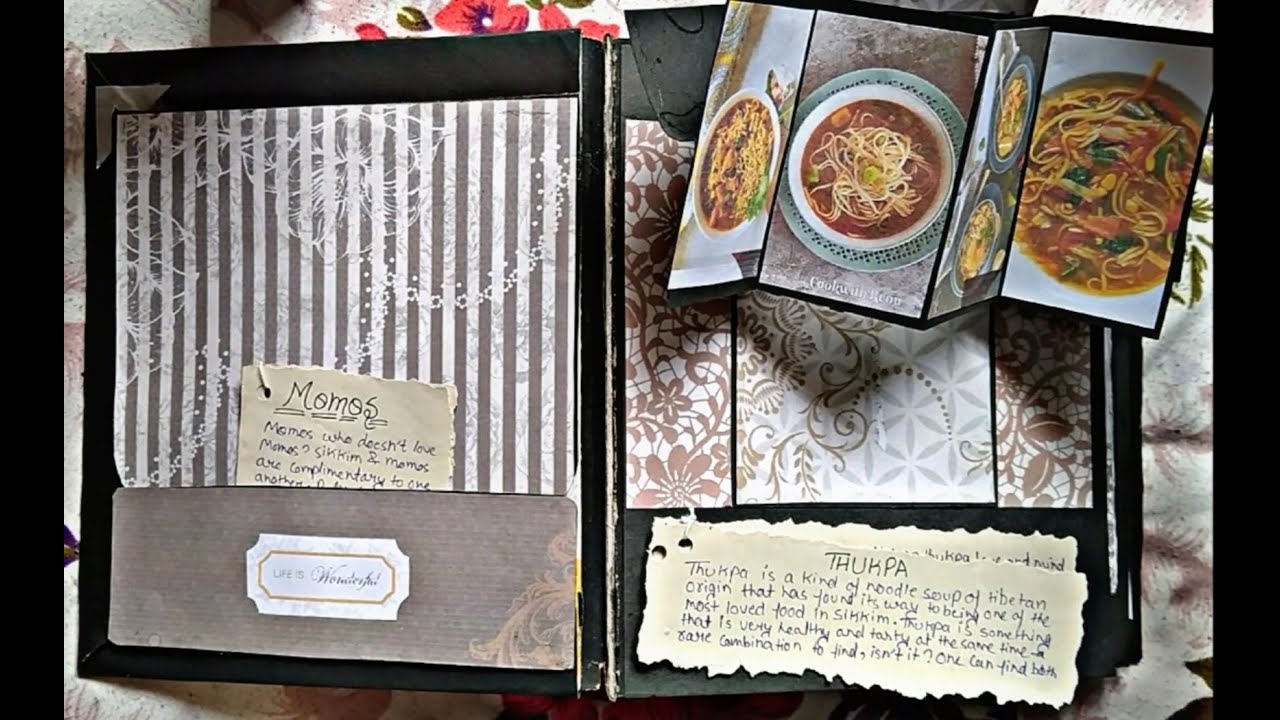 Momos
Momos who doesn't love
Momos? Sikkim & momos
are complimentary to one
LIFE IS Wonderful
THUKPA
Thukpa is a kind of noodle soup of tibetan
origin that has found its way to being one of the
most loved food in Sikkim. Thukpa is something
that is very healthy and tasty at the same time a
rare combination to find, isn't it? One can find both